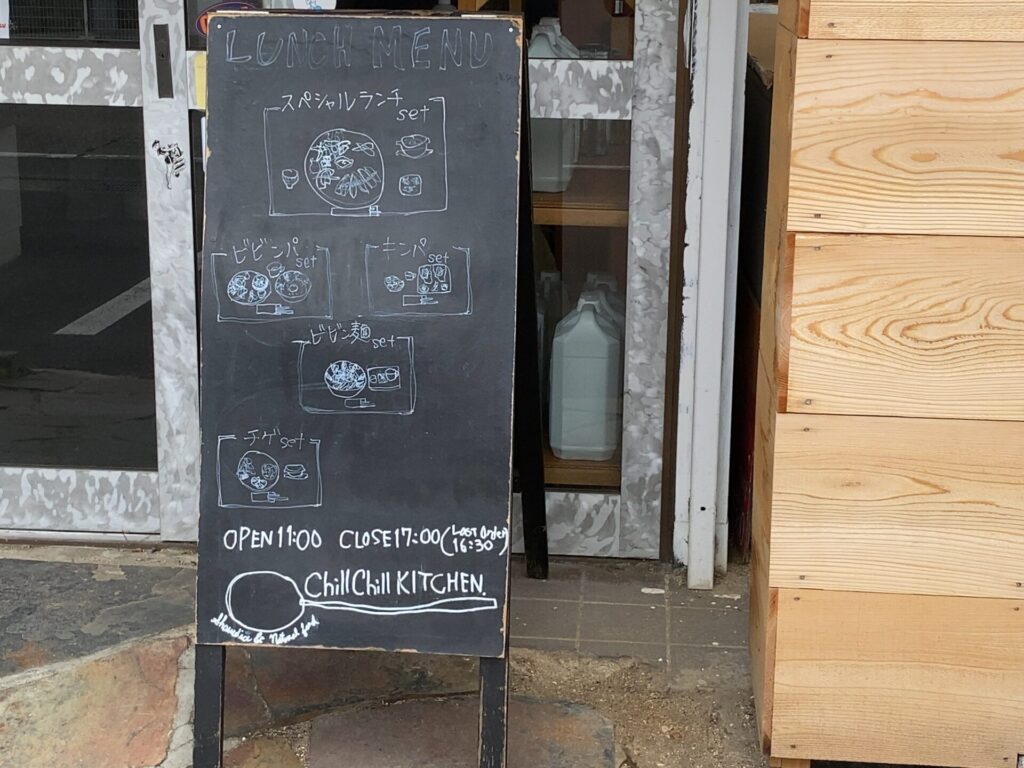 LUNCH MENU
スペシャルランチ
set
ビビンパ
set
キンパ
set
ビビン麺
set
チゲset
OPEN11:00 CLOSE17:00(Last Order
16:30)
ChillChill KITCHEN.
& Natural food